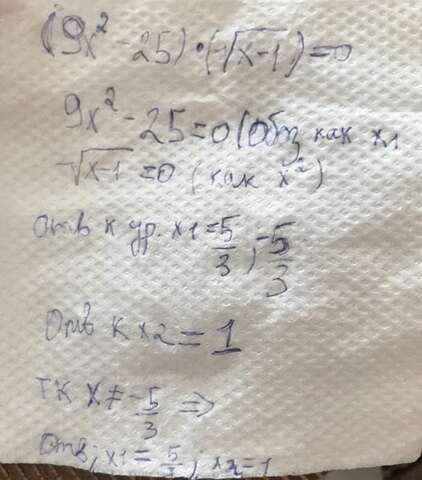 (9x² - 25) · (-√x-1) = 0
9x² - 25 = 0 (Обз как x1
-√x-1 = 0 (как x²)
Отв к ур. x1 = 5/3 ; -5/3
Отв к x2 = 1
тк x ≠ -5/3 ⇒
Отв; x1 = 5/3 ; x2 = 1